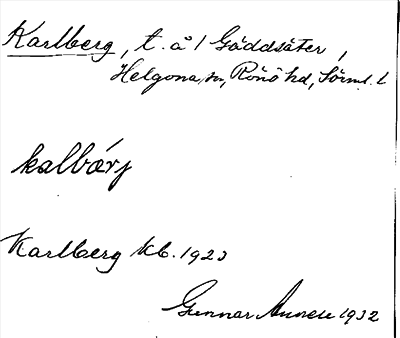 Karlberg, t. å 1 Gäddsäter,
Helgona sn, Rönö hd, Sörml. l
kalbärj
Karlberg kb. 1923
Gunnar 1932